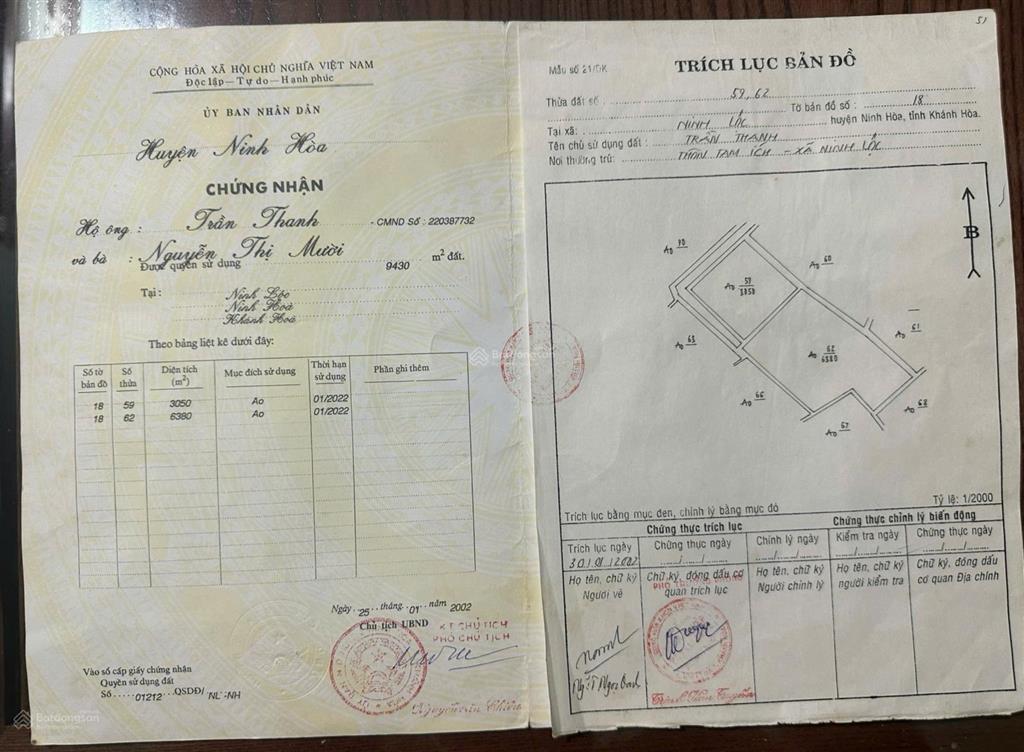 CỘNG HÒA XÃ HỘI CHỦ NGHĨA VIỆT NAM
Độc lập - Tự do - Hạnh phúc
ỦY BAN NHÂN DÂN
Huyện Ninh Hòa
CHỨNG NHẬN
Hộ ông : Trần Thanh - CMND Số : 220387732
và bà : Nguyễn Thị Mười
Được quyền sử dụng 9430 m² đất.
Tại : Ninh Lộc
Ninh Hoà
Khánh Hoà
Theo bảng liệt kê dưới đây:
Số tờ bản đồ Số thửa Diện tích (m²) Mục đích sử dụng Thời hạn sử dụng Phần ghi thêm
18 59 3050 Ao 01/2022
18 62 6380 Ao 01/2022
Ngày 25 tháng 01 năm 2002
Chủ tịch UBND
KT CHỦ TỊCH
PHÓ CHỦ TỊCH
Vào sổ cấp giấy chứng nhận
Quyền sử dụng đất
Số 01212 QSDĐ/
Batdongsan
51
Mẫu số 21/ĐK
TRÍCH LỤC BẢN ĐỒ
Thửa đất số : 59, 62 Tờ bản đồ số : 18
Tại xã : NINH LỘC huyện Ninh Hòa, tỉnh Khánh Hòa.
Tên chủ sử dụng đất : TRẦN THANH
Nơi thường trú : THÔN TAM ÍCH - XÃ NINH LỘC
B
Ao 70
Ao 60
Ao 59 3050
Ao 61
Ao 63
Ao 62 6380
Ao 66
Ao 68
Ao 67
Batdongsan
Tỷ lệ: 1/2000
Trích lục bằng mục đen, chỉnh lý bằng mục đỏ
Chứng thực trích lục Chứng thực chỉnh lý biến động
Trích lục ngày Chứng thực ngày Chỉnh lý ngày Kiểm tra ngày Chứng thực ngày
30/01/2002
Họ tên, chữ ký Người vẽ
Chữ ký, đóng dấu cơ quan trích lục
Họ tên, chữ ký Người chỉnh lý
Họ tên, chữ ký người kiểm tra
Chữ ký, đóng dấu cơ quan Địa chính
Batdongsan